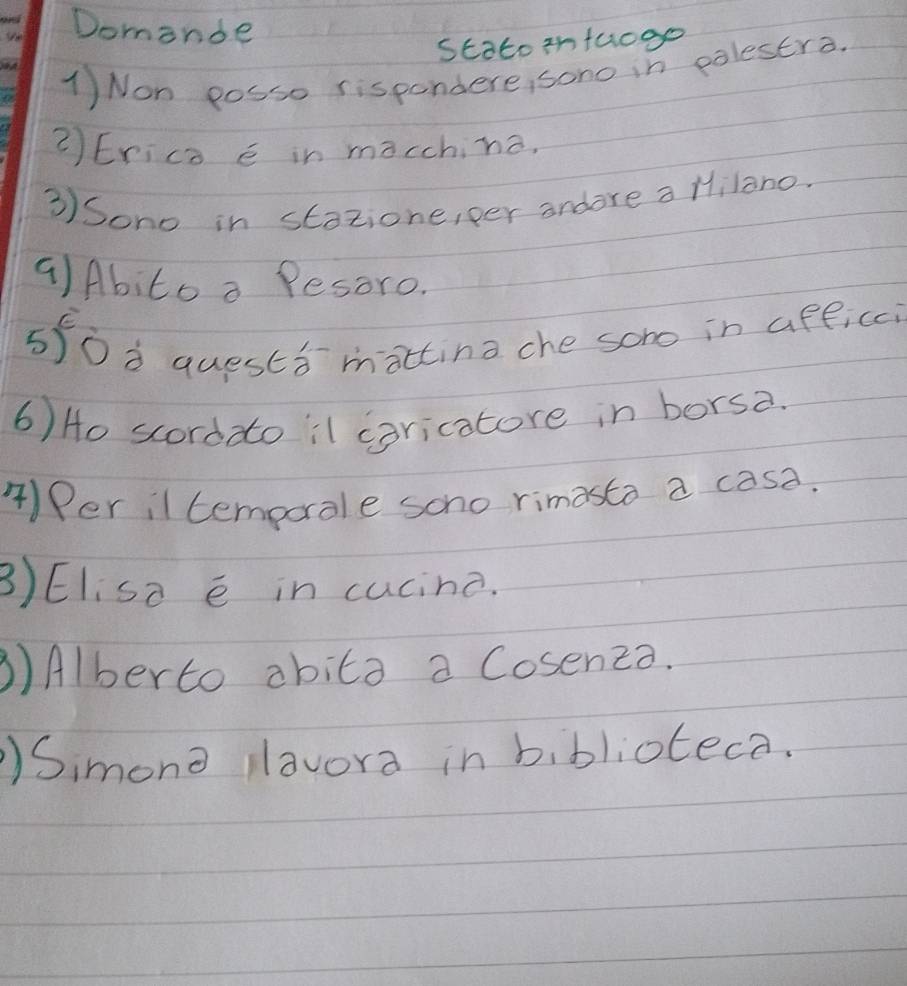 Domande
Stato in luogo
1) Non posso rispondere, sono in palestra.
2) Erica è in macchina.
3) Sono in stazione, per andare a Milano.
4) Abito a Pesaro.
5) È da questa mattina che sono in ufficci
6) Ho scordato il caricatore in borsa.
7) Per il temporale sono rimasta a casa.
8) Elisa è in cucina.
9) Alberto abita a Cosenza.
) Simona lavora in biblioteca.